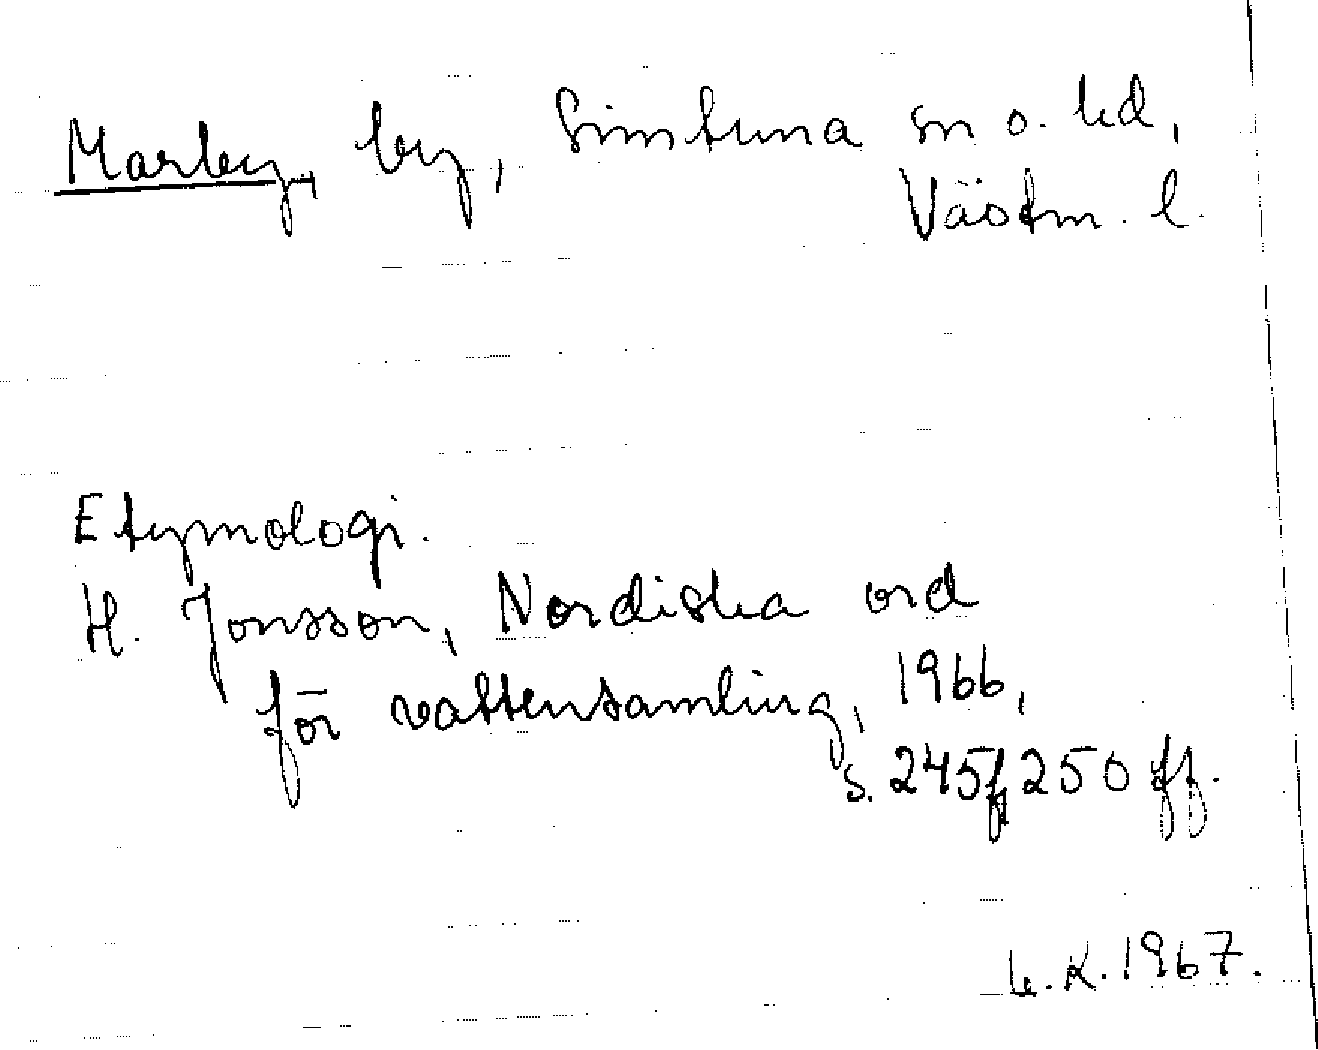 Marby, by, Simtuna sn o. hd,
Västm. l.
Etymologi.
H. Jonsson, Nordiska ord
för vattensamling, 1966,
s. 245f, 250 ff.
K. 1967.